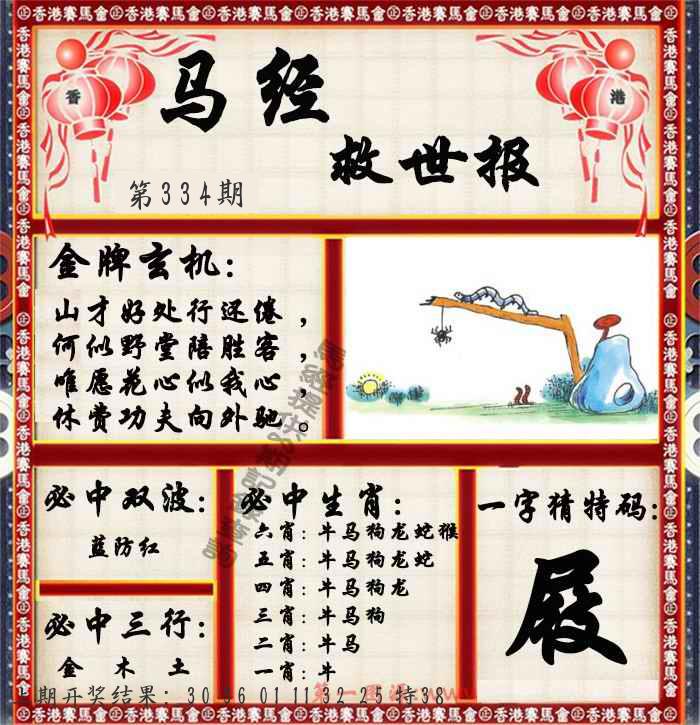 香港賽馬會 香港賽馬會 香港賽馬會 香港賽馬會 香港賽馬會 香港賽馬會
香 港
马经
救世报
第334期
金牌玄机:
山才好处行还倦,
何似野堂陪胜客,
唯愿花心似我心,
休费功夫向外驰。
必中双波:
蓝防红
必中三行:
金 木 土
必中生肖:
六肖: 牛马狗龙蛇猴
五肖: 牛马狗龙蛇
四肖: 牛马狗龙
三肖: 牛马狗
二肖: 牛马
一肖: 牛
一字猜特码:
屐
期开奖结果: 30 36 01 11 32 25 特38